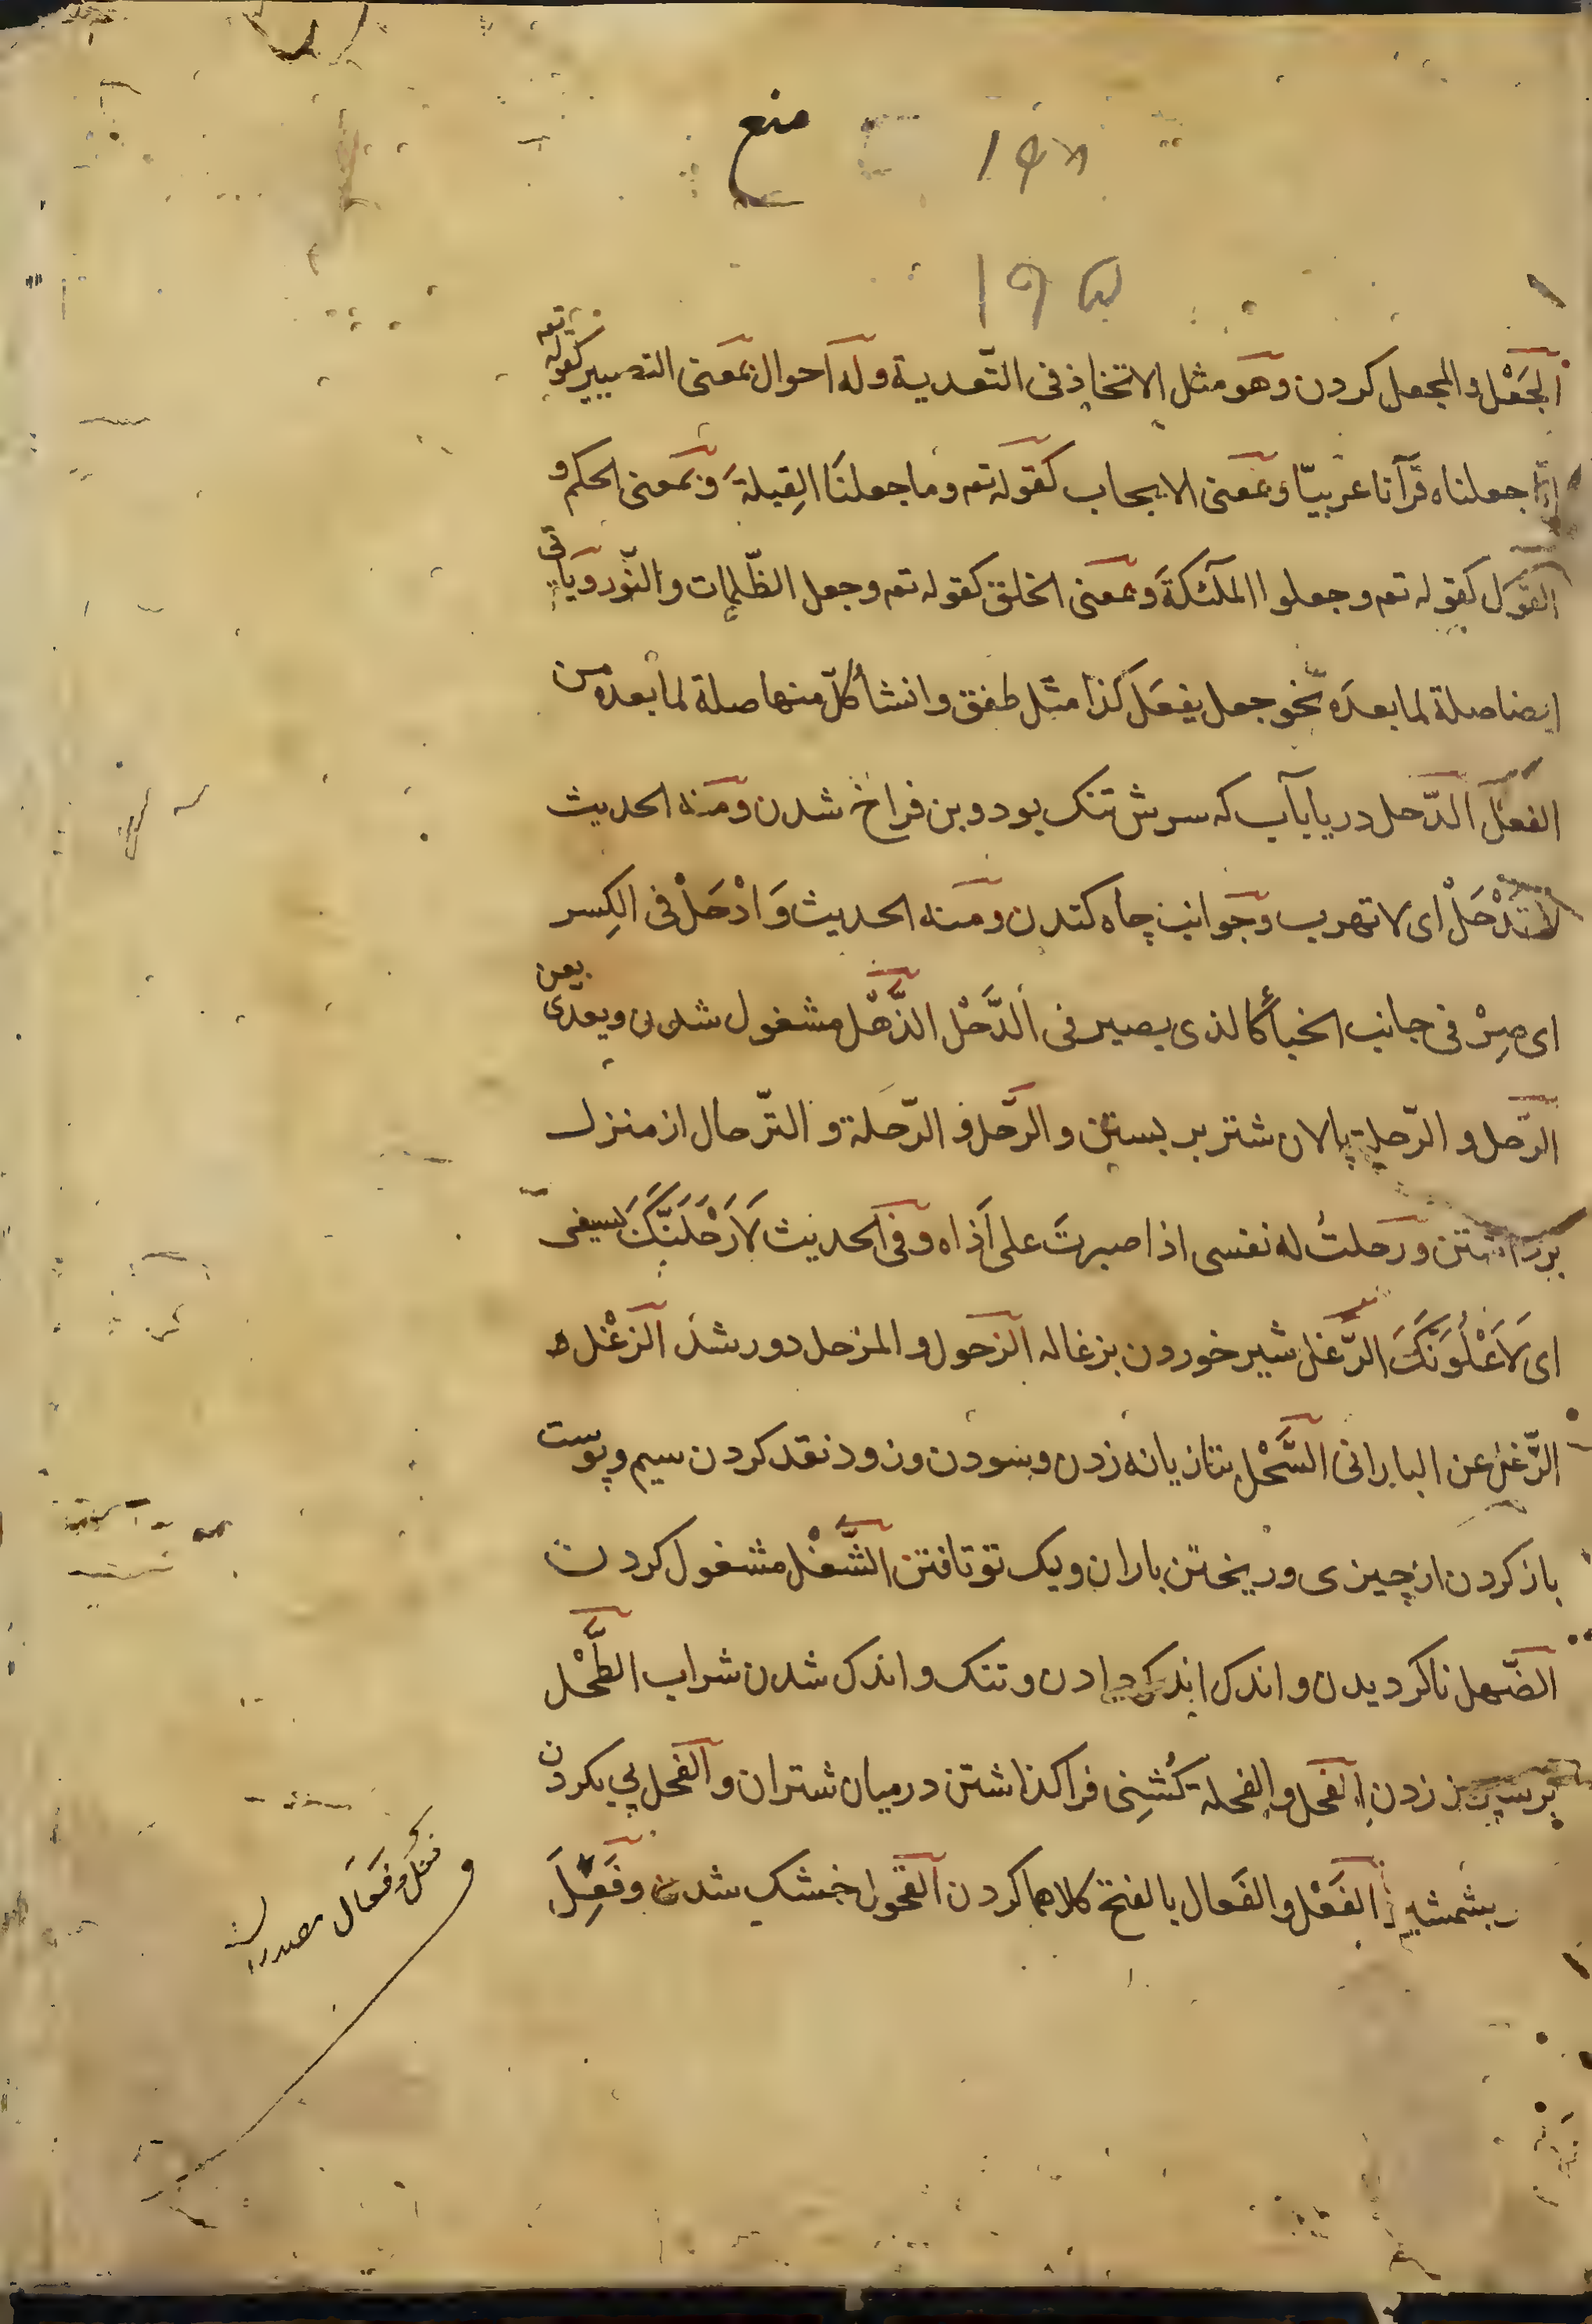 منع
الجَعْل والمجعل كردن وهو مثل الاتخاذ فى التّعدية وله احوال بمعنى التصيير كقوله تعه
انّا جعلناه قرآنا عربيّا وبمعنى الايجاب كقوله تعه وما جعلنَا القِبلةَ وبمعنى الحكم و
القول كقوله تعه وجعلوا الملٓئكةَ وبمعنى الخلق كقوله تعه وجعل الظّلمات والنّور وياتى
ايضا صلة لما بعده نحو جعل يفعَل كذا مثل طفق وانشأ كلّ منها صلة لما بعده من
الفعل الدّحل در ياباب كه سرش تنک بود وبن فراخ شدن ومنه الحديث
لا تَدْحَلْ اى لا تهرب وجوانب چاه كندن ومنه الحديث وَادْحَلْ فى الكِسر
اى صِرْ فى جانب الخبأ كالذى يصير فى الدَّحْل الذَّهْل مشغول شدن ويعدى بعن
الرّحل و الرّحلة پالان شتر بر بستن والرَّحل و الرّحلة و التّرحال از منزل
برداشتن ورحلتُ له نفسى اذا صبرتَ على اَذَاه وفى الحديث لَاَرْحَلَنَّكَ بسيفى
اى لَاَعْلُوَنَّكَ الرَّغل شير خوردن بزغاله الزحول و المزحل دور شدن الزَغْل
الرَّغل عن البارانى السَّحْل بتازيانه زدن وبسودن وزود نقد كردن سيم وپوست
باز كردن از چيزى وريختن باران ويک تو تافتن الشَّغْل مشغول كردن
الضَّهل ناكرديدن و اندک اندک دادن و تنک و اندک شدن شراب الطَّحْل
بر سپرز زدن الفَحل و الفحلة كُشنِى فرا كذاشتن درميان شتران و الفحل پي بكردن
بشمشير الفَعْل والفَعال بالفتح كلاهما كردن القحول خشک شدن وفَعِلَ
فعل وفَعَال مصدر